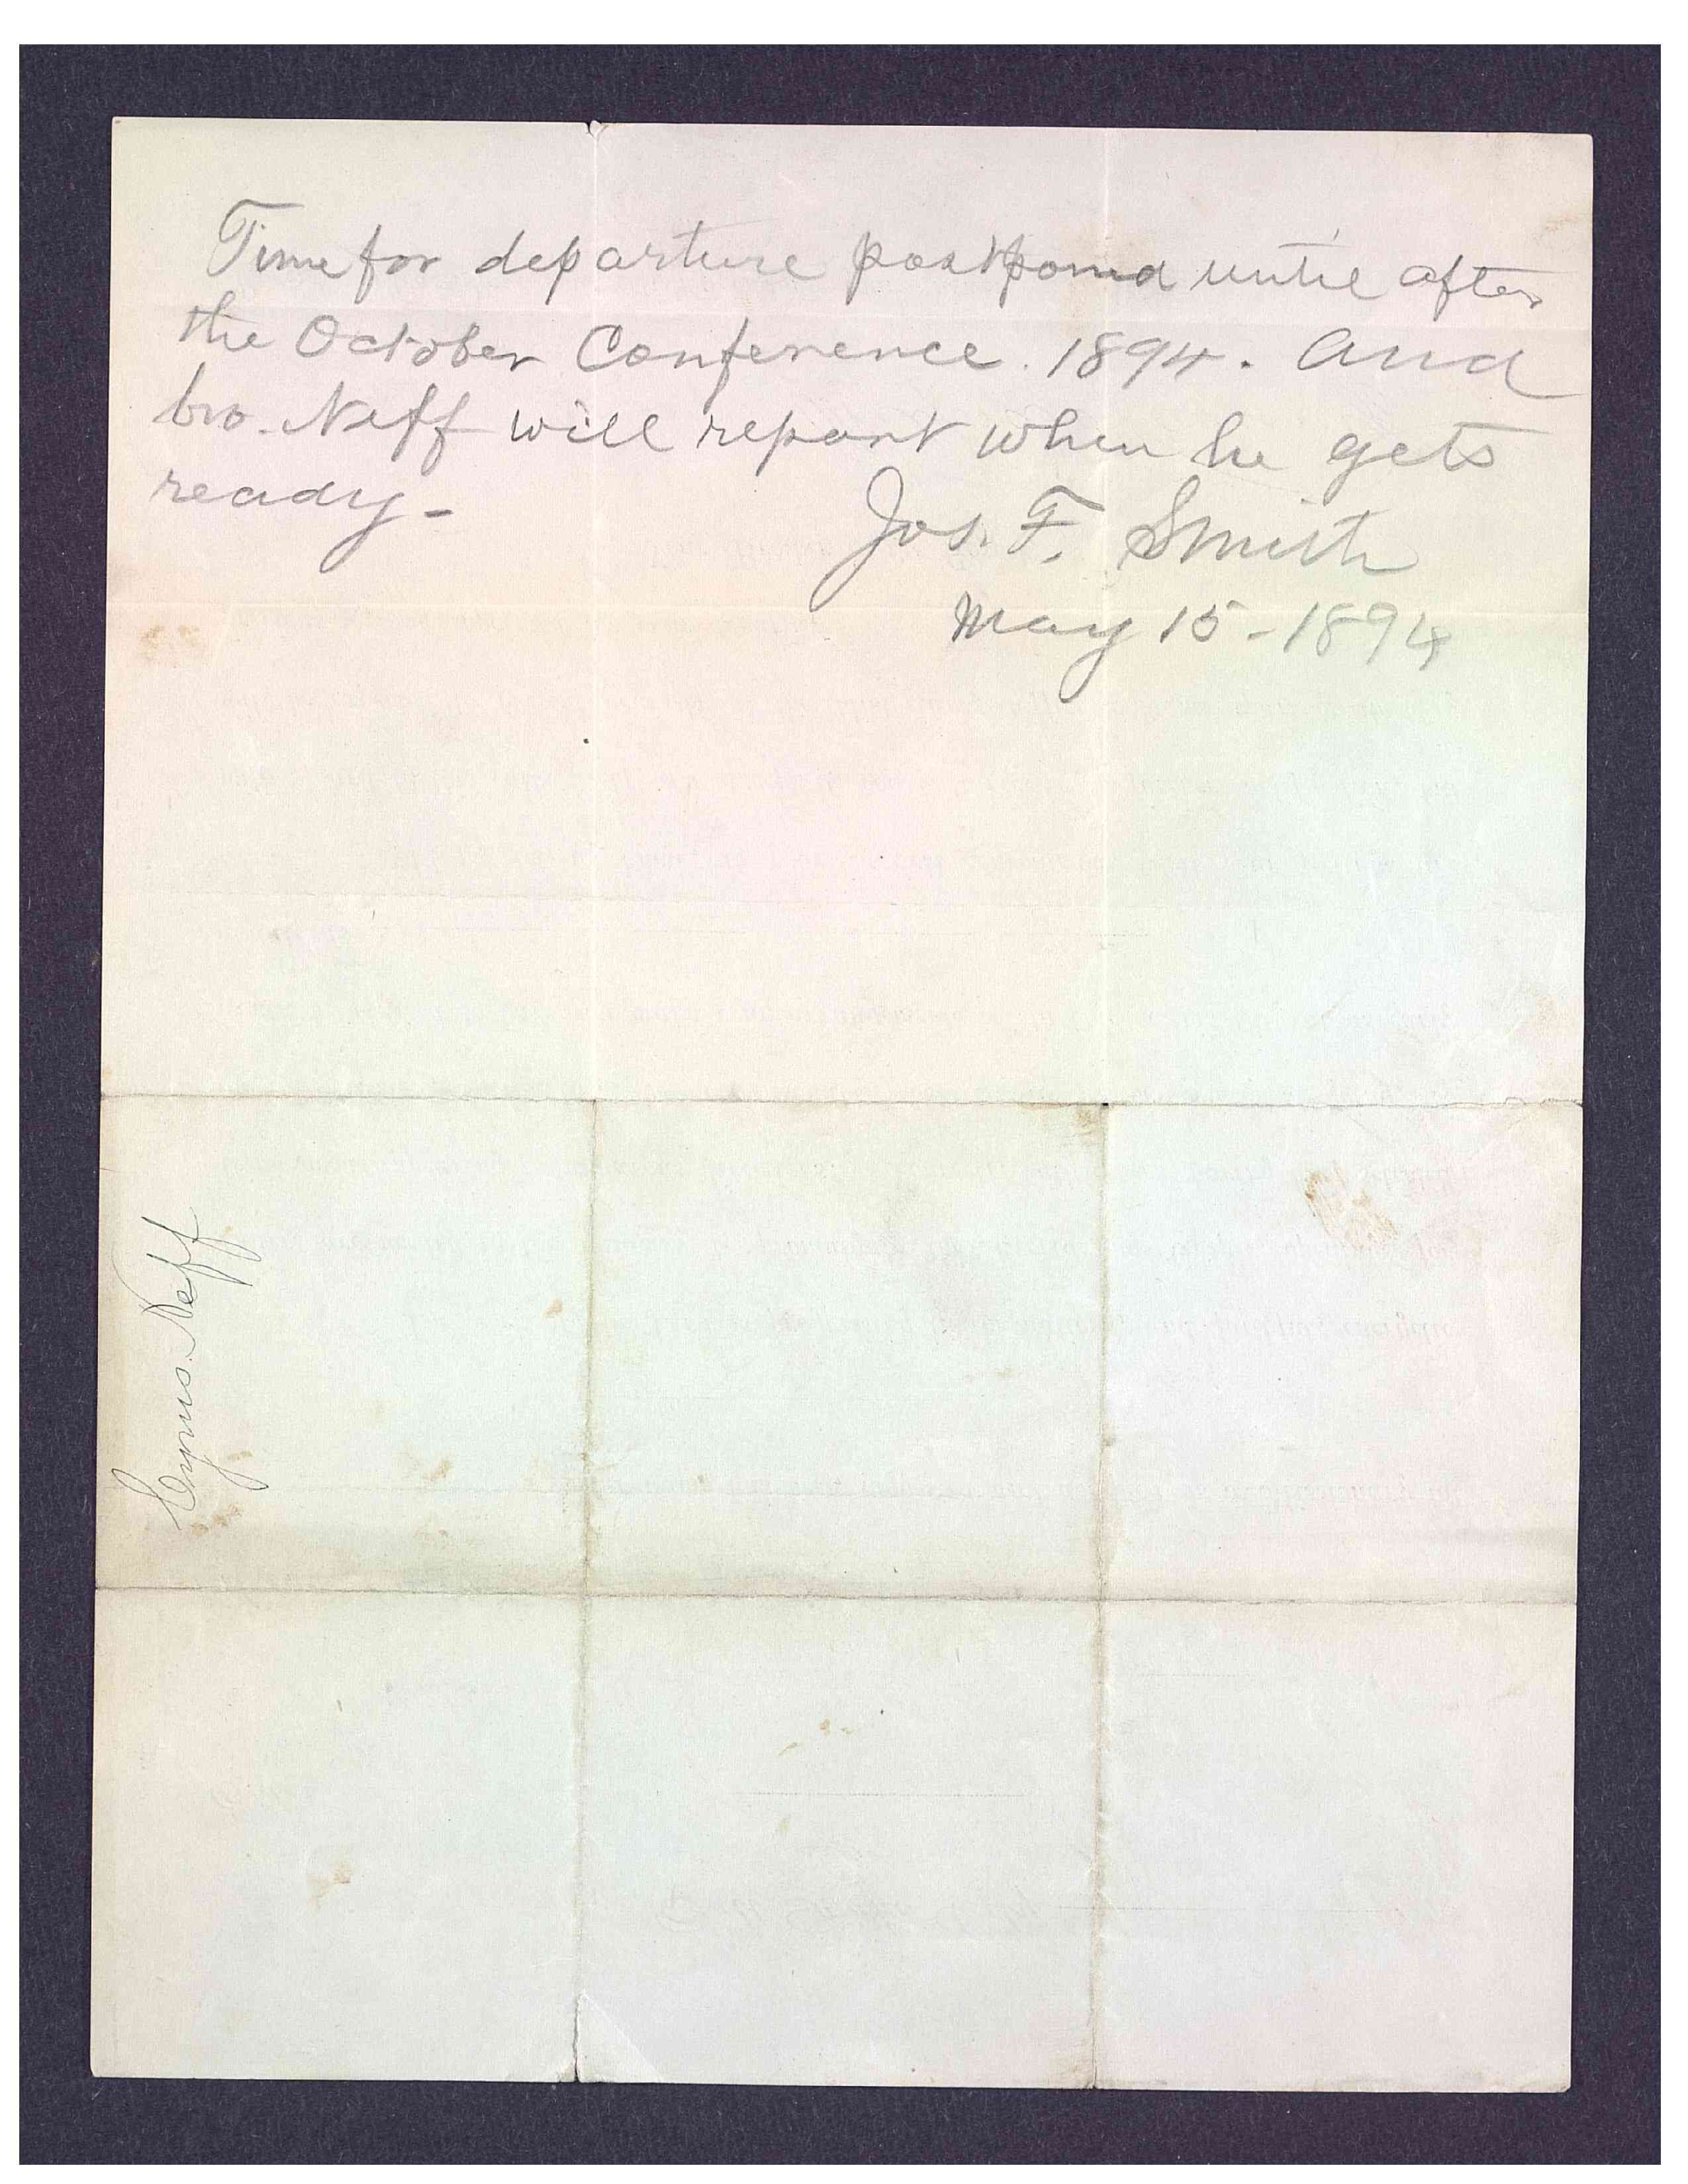 Time for departure postponed until after
the October Conference. 1894. And
bro. Neff will report when he gets
ready-
Jos. F. Smith
May 15-1894
Cyrus Neff